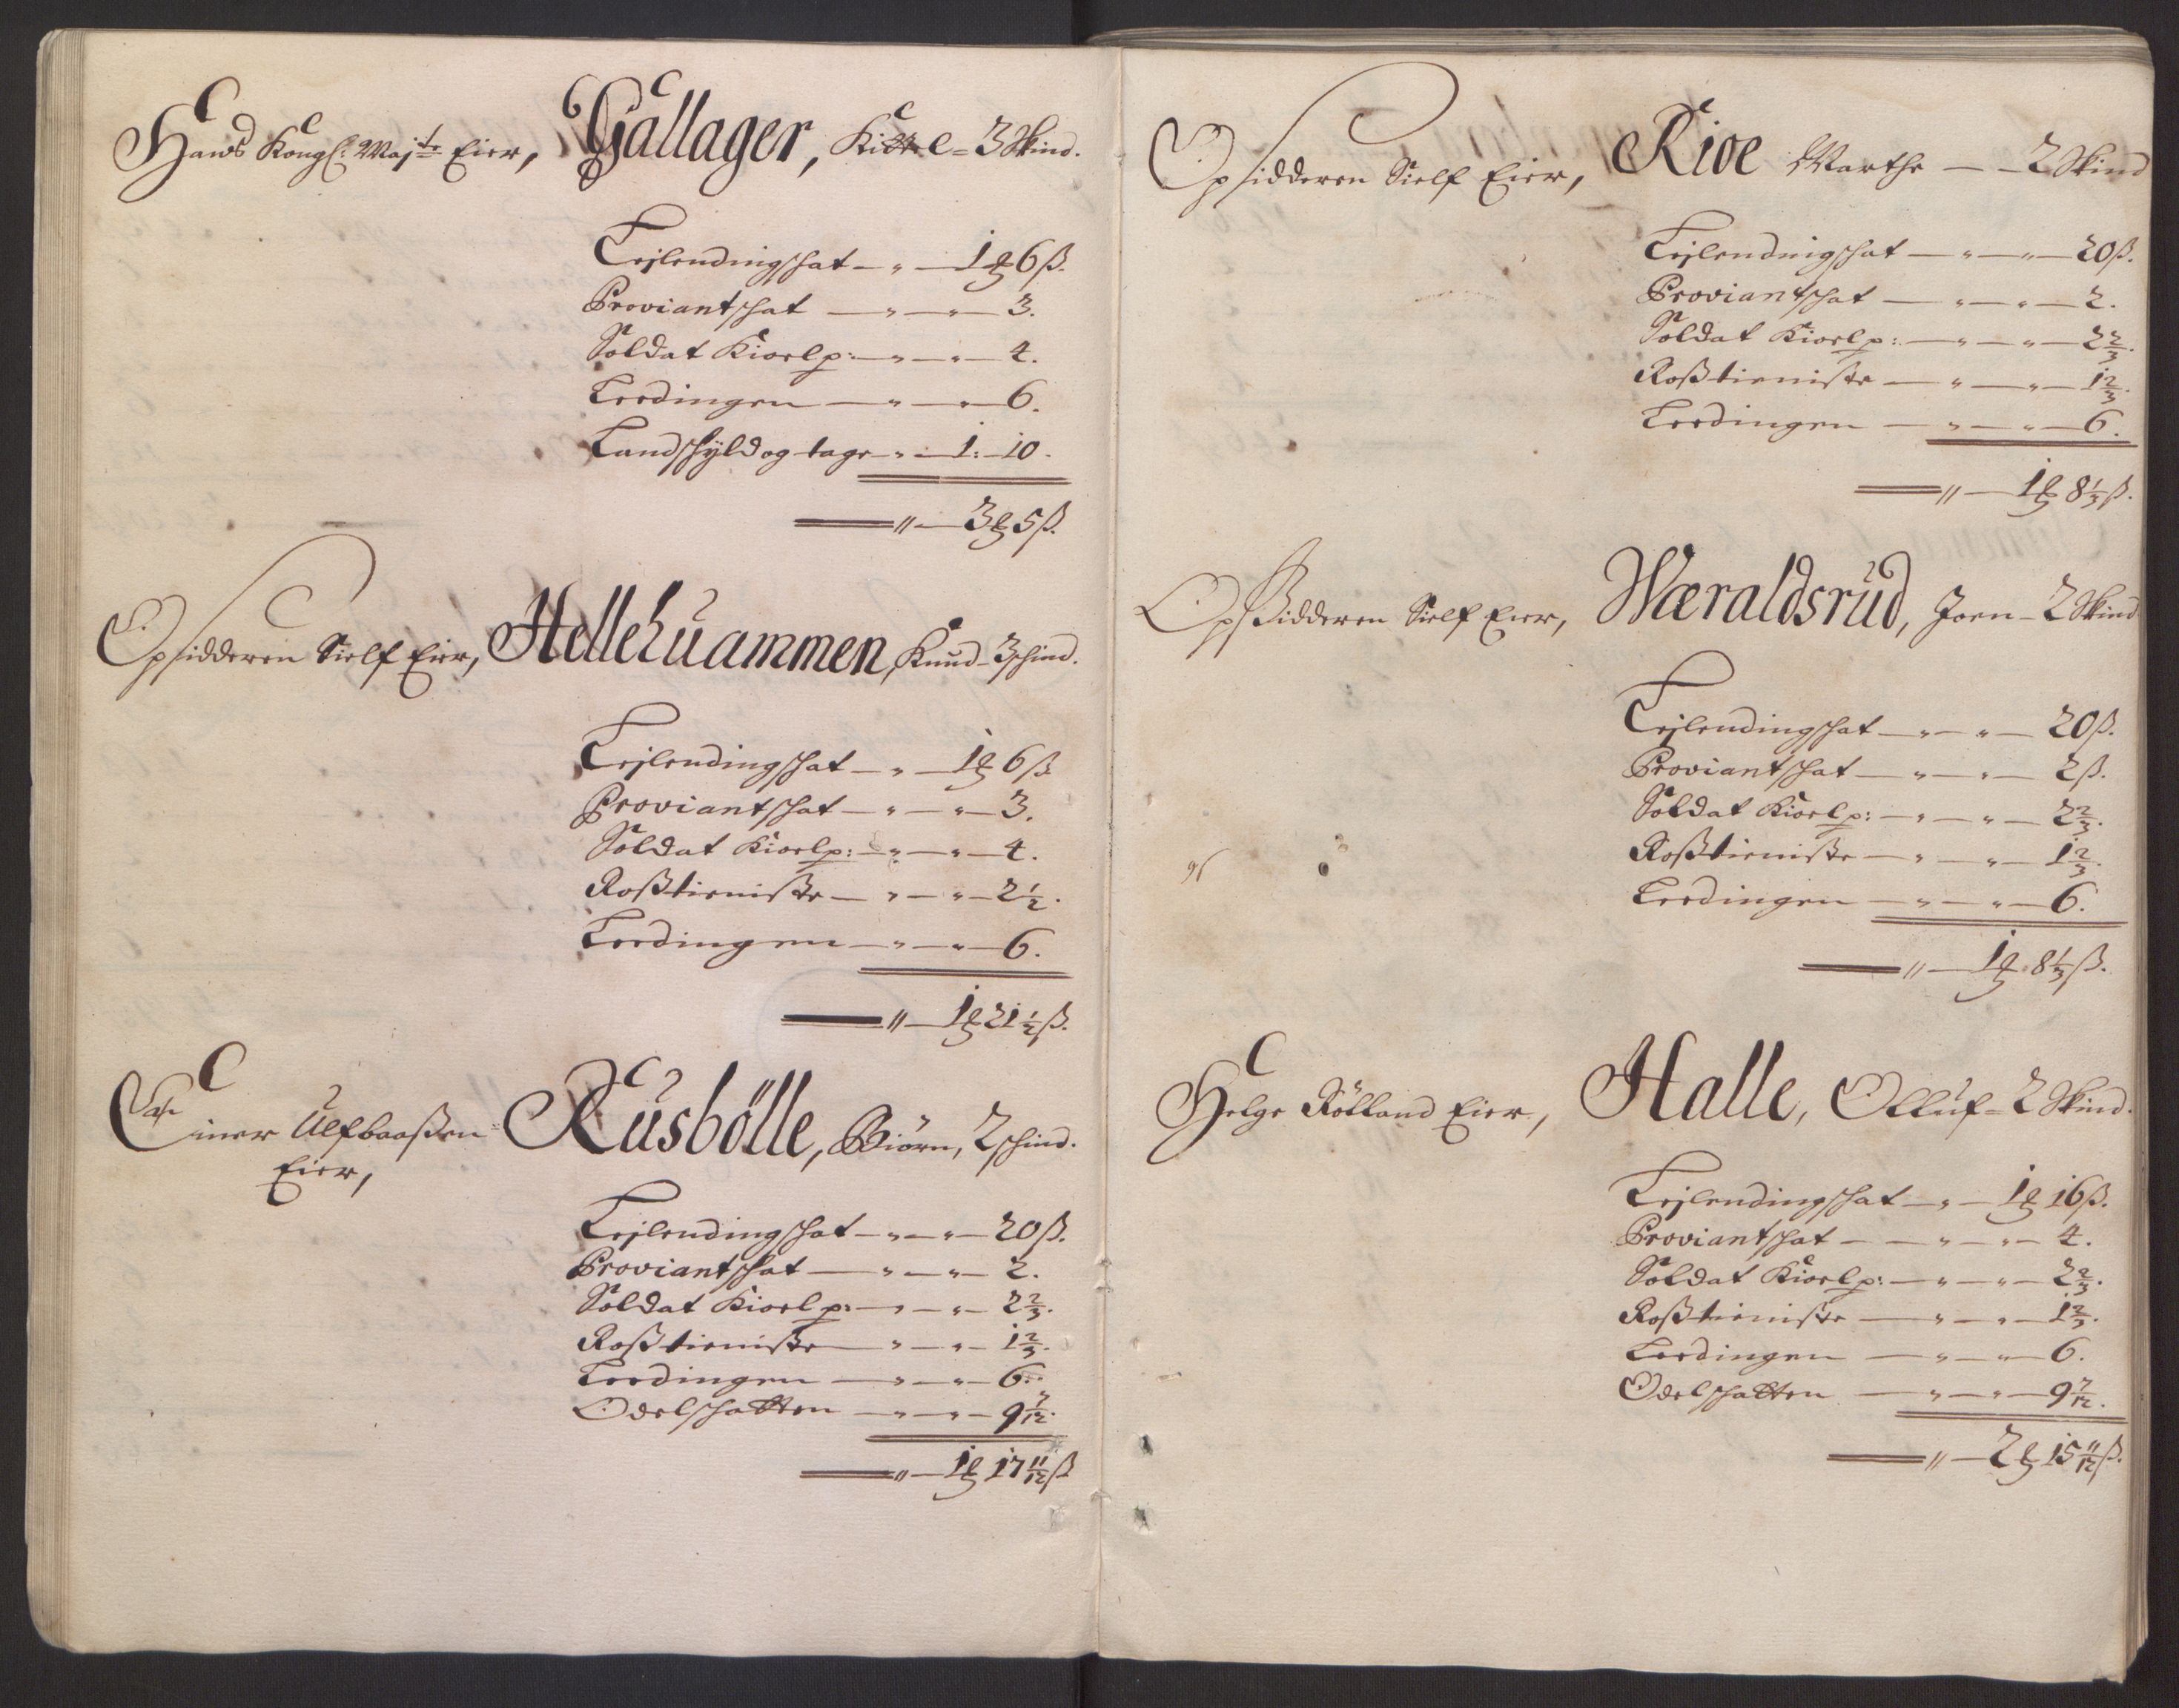 Hans Kongl: Maj:ts Eier, Gallager, Kittel = 3 Skind.
Leilendingschat — " — 1 rd 6 ß.
Proviantschat — " — " — 3.
Soldat Kiorlp: — " — " — 4.
Leedingen — " — " — 6.
Landschyld og tage — " — 1: — 10.
" — 3 rd 5 ß.
Opsidderen Sielf Eier, Hellehuammen, Knud — 3 schind.
Leilendingschat — " — 1 rd 6 ß
Proviantschat — " — " — 3.
Soldat Kiorlp: — " — " — 4.
Roßtieniste — " — " — 2 1/2.
Leedingen — " — " — 6.
" — 1 rd 21 1/2 ß.
Sal: Einer Ulfbaaßen
Eier, Rusbölle, Biörn, 2 schind.
Leilendingschat — " — " — 20 ß.
Proviantschat — " — " — 2.
Soldat Kiorlp: — " — " — 2 2/3.
Roßtieniste — " — " — 1 2/3.
Leedingen — " — " — 6.
Odelschatten — " — " — 9 7/12.
" — 1 rd 17 11/12 ß
Opsidderen Sielf Eier, Kioe Marthe — 2 Skind
Leilendingschat — " — " — 20 ß.
Proviantschat — " — " — 2.
Soldat Kiorlp: — " — " — 2 2/3.
Roßtieniste — " — " — 1 2/3.
Leedingen — " — " — 6.
" — 1 rd 8 1/3 ß.
Opsidderen Sielf Eier, Wæraldsrud, Joen — 2 Skind
Leilendingschat — " — " — 20 ß.
Proviantschat — " — " — 2 ß.
Soldat Kiorlp: — " — " — 2 2/3.
Roßtieniste — " — " — 1 2/3.
Leedingen — " — " — 6.
" — 1 rd 8 1/3 ß.
Helge Rölland Eier, Halle, Olluf = 2 Skind.
Leilendingschat — " — 1 rd 16 ß.
Proviantschat — " — " — 4.
Soldat Kiorlp: — " — " — 2 2/3.
Roßtieniste — " — " — 1 2/3.
Leedingen — " — " — 6.
Odelschatten — " — " — 9 7/12.
" — 2 rd 15 11/12 ß.